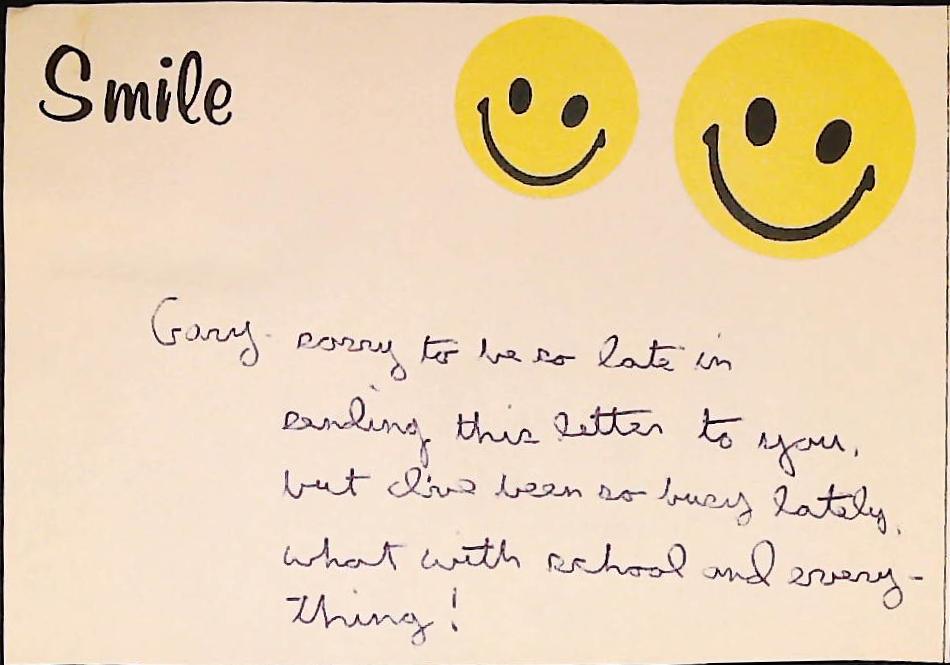 Smile
Gary- sorry to be so late in
sending this letter to you,
but I've been so busy lately,
what with school and every-
thing!